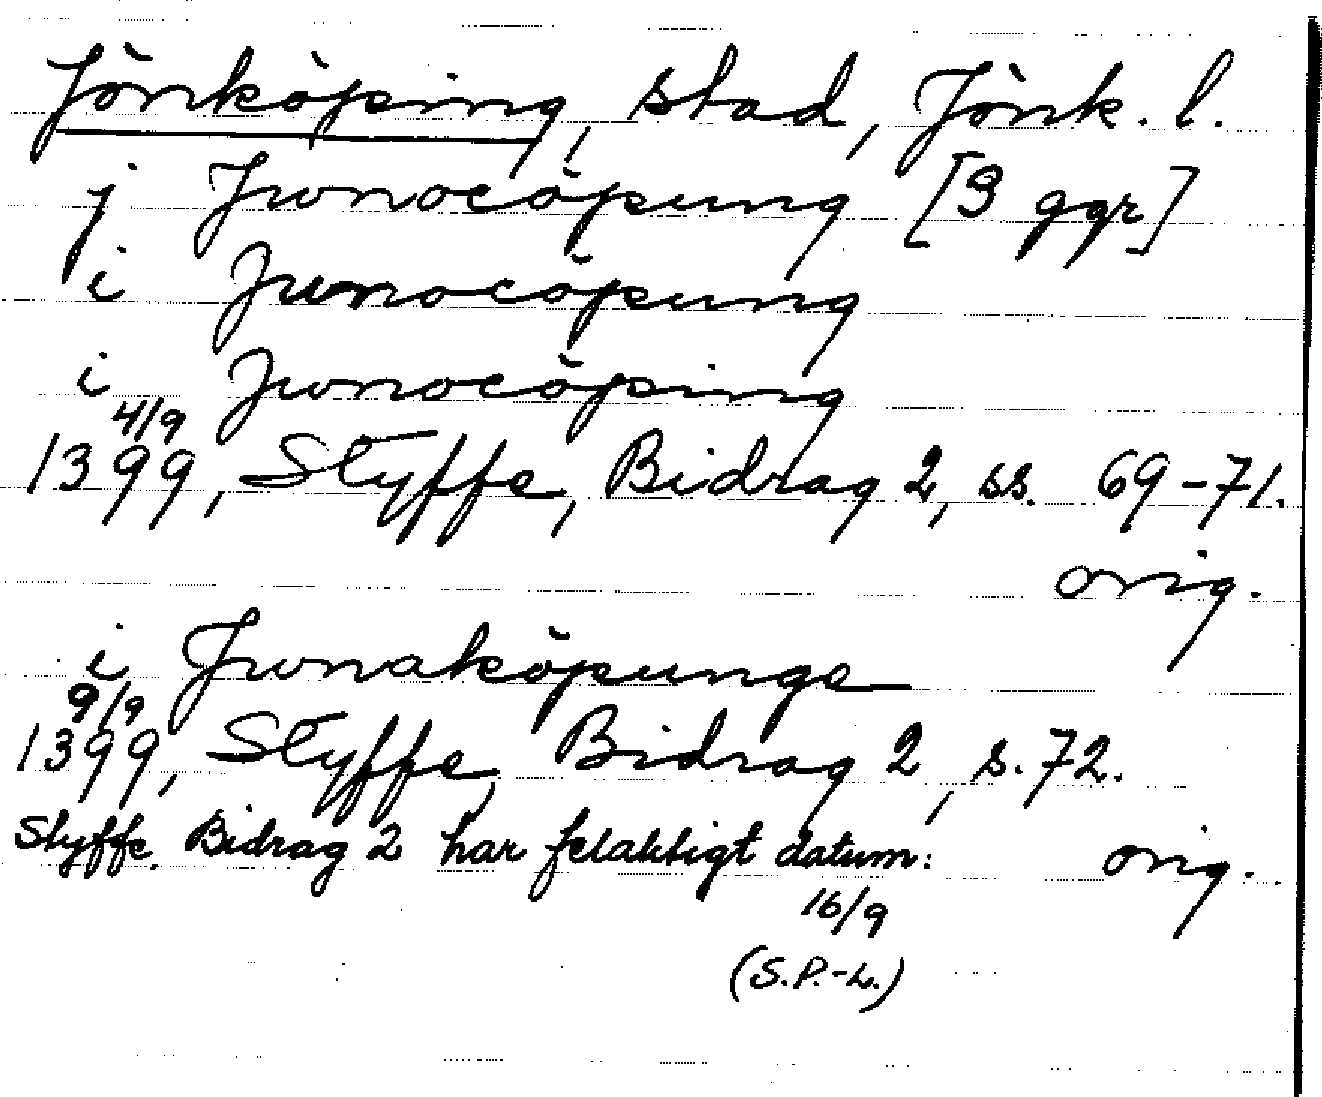 Jönköping, stad, Jönk. l.
j Junocöpung [3 ggr]
i Junocöpung
i Junocöping
4/9
1399, Styffe, Bidrag 2, ss. 69-71.
orig.
i Junaköpunge
9/9
1399, Styffe, Bidrag 2, s. 72.
Styffe. Bidrag 2 har felaktigt datum: orig.
16/9
(S.P.-L.)